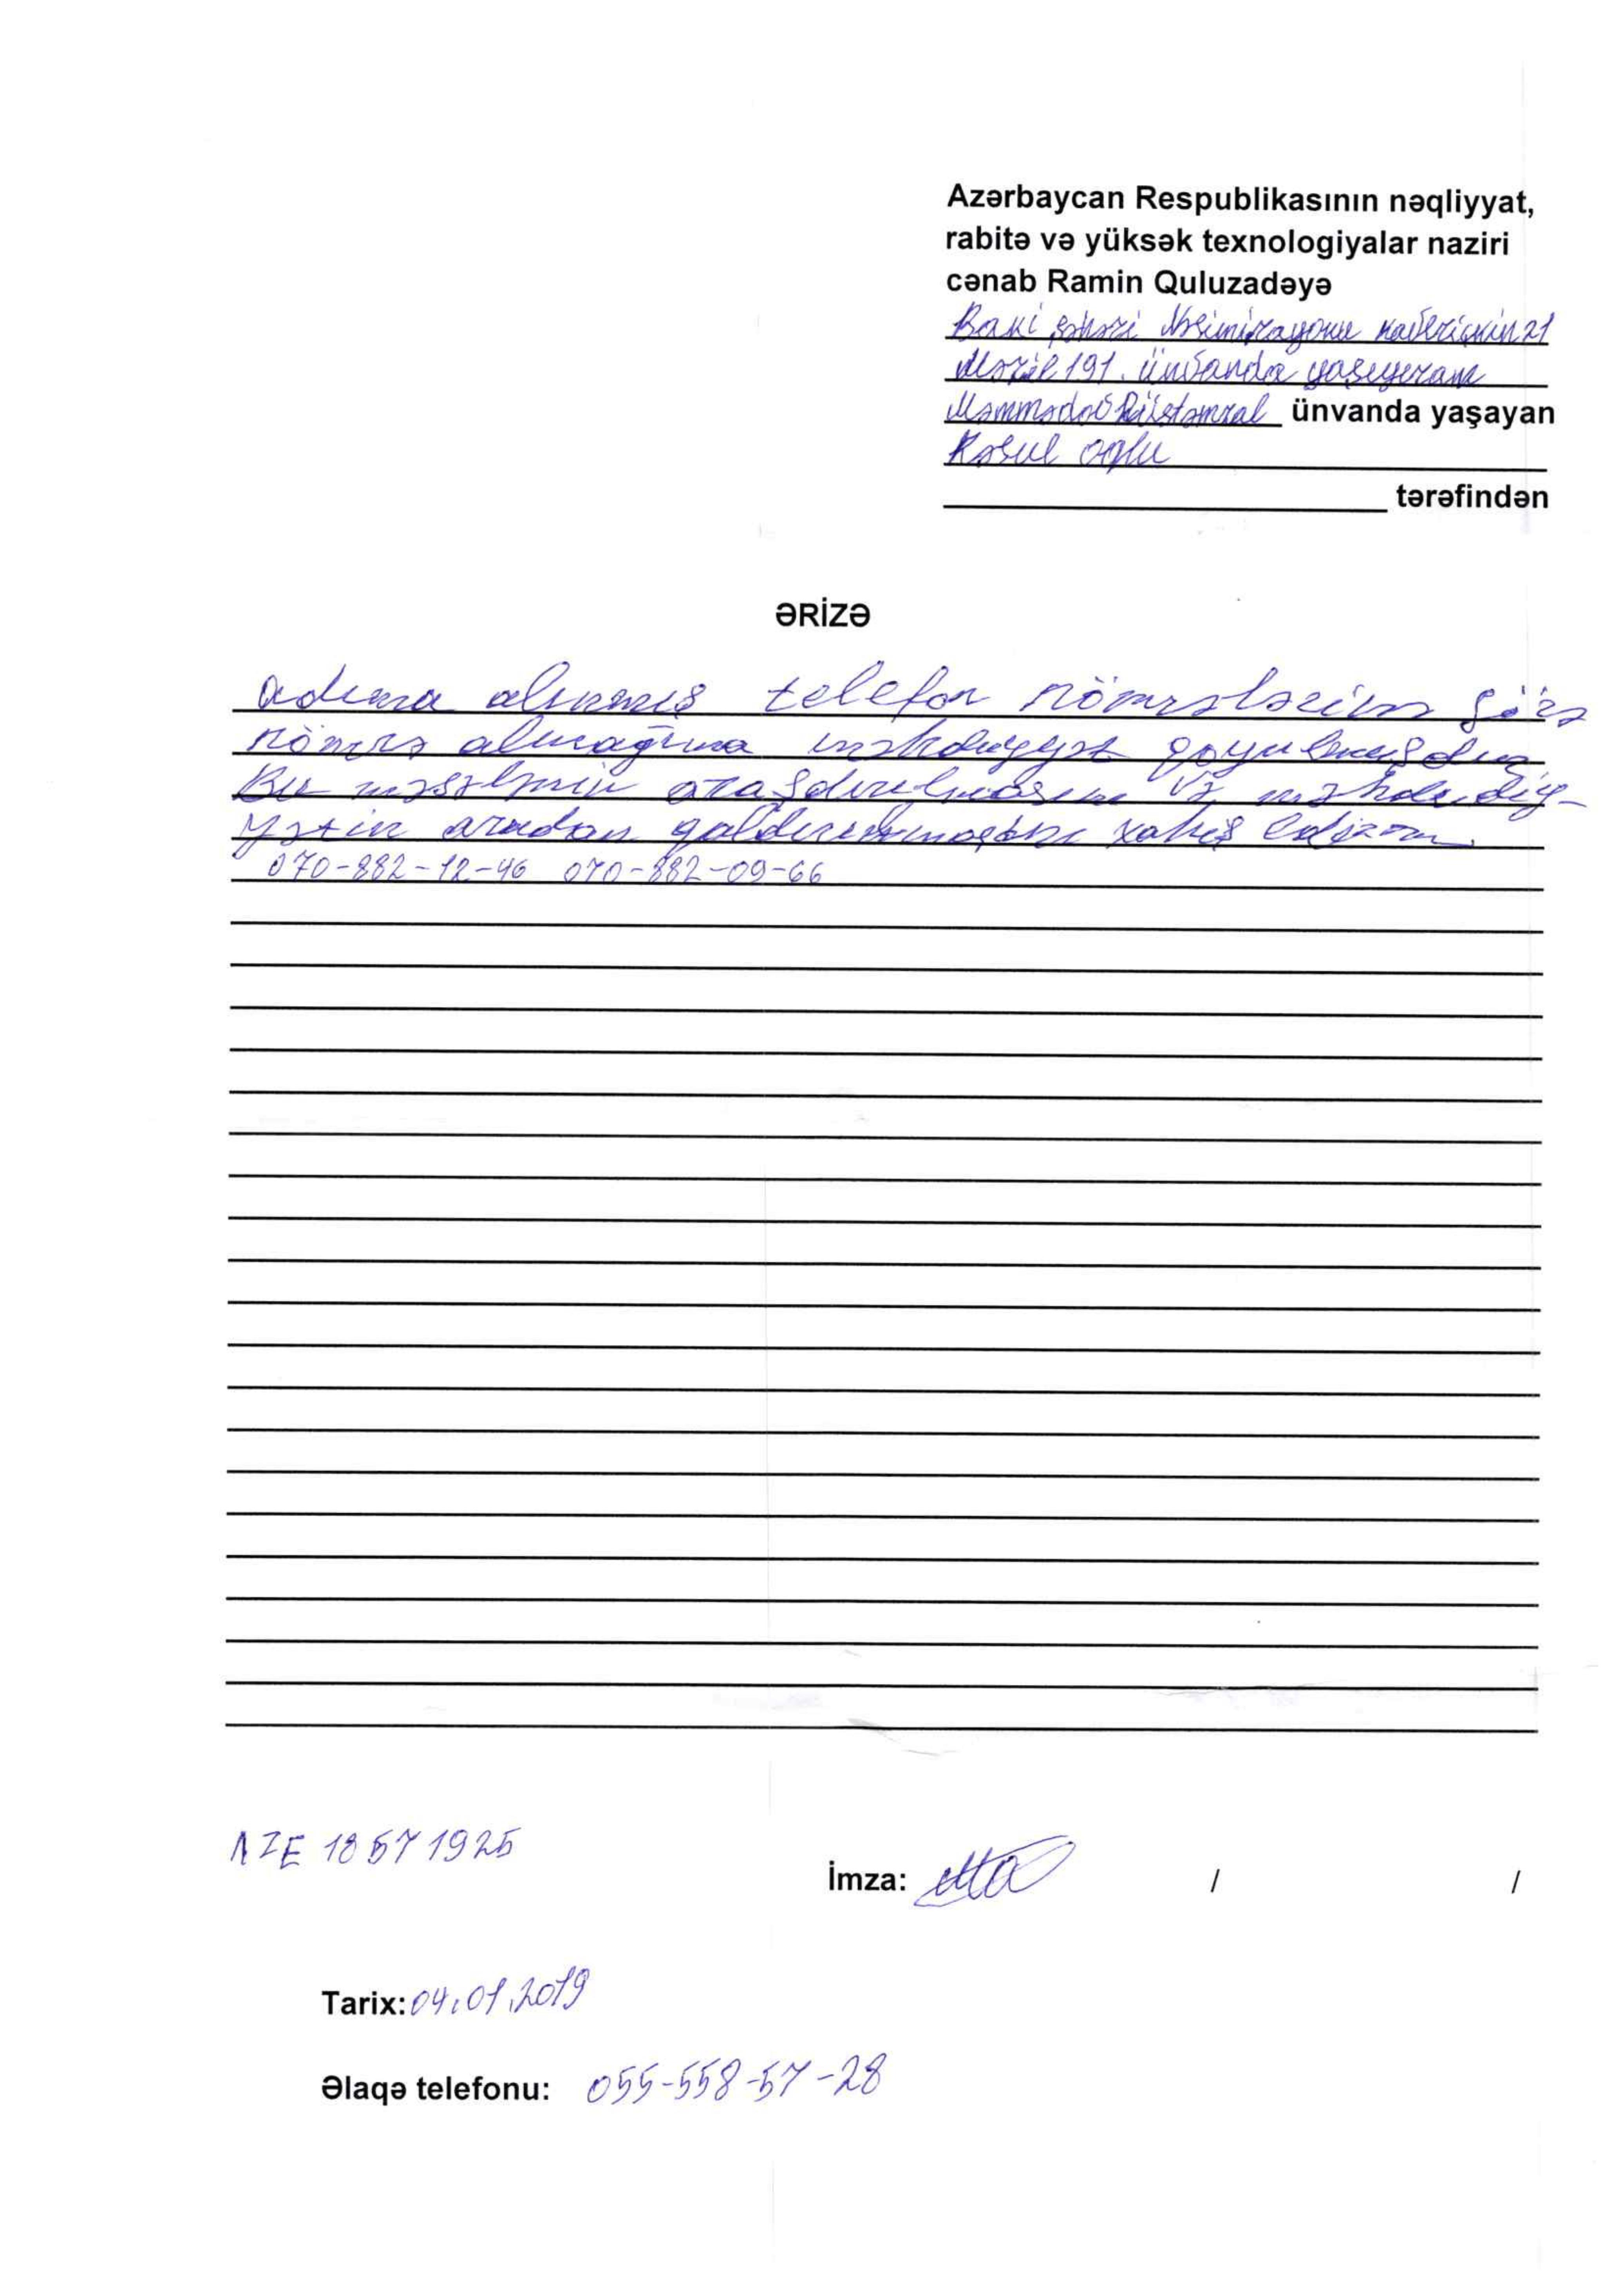 Azərbaycan Respublikasının nəqliyyat,
rabitə və yüksək texnologiyalar naziri
cənab Ramin Quluzadəyə
Baki şəhəri Nəsimi rayonu 21
Mənzil 191. ünvanda yaşıyıram
Məmmədov ünvanda yaşayan
Rəsul oğlu
tərəfindən
ƏRİZƏ
adıma alınmış telefon nömrələrim görə
nömrə almağıma qoyulmuşdur
Bu məsələnin araşdırılmasını və məhdudiy-
yətin aradan xahiş edirəm.
070-882-12-46 070-882-09-66
AZE 18571925
İmza: / /
Tarix: 04.01.2019
Əlaqə telefonu: 055-558-57-28